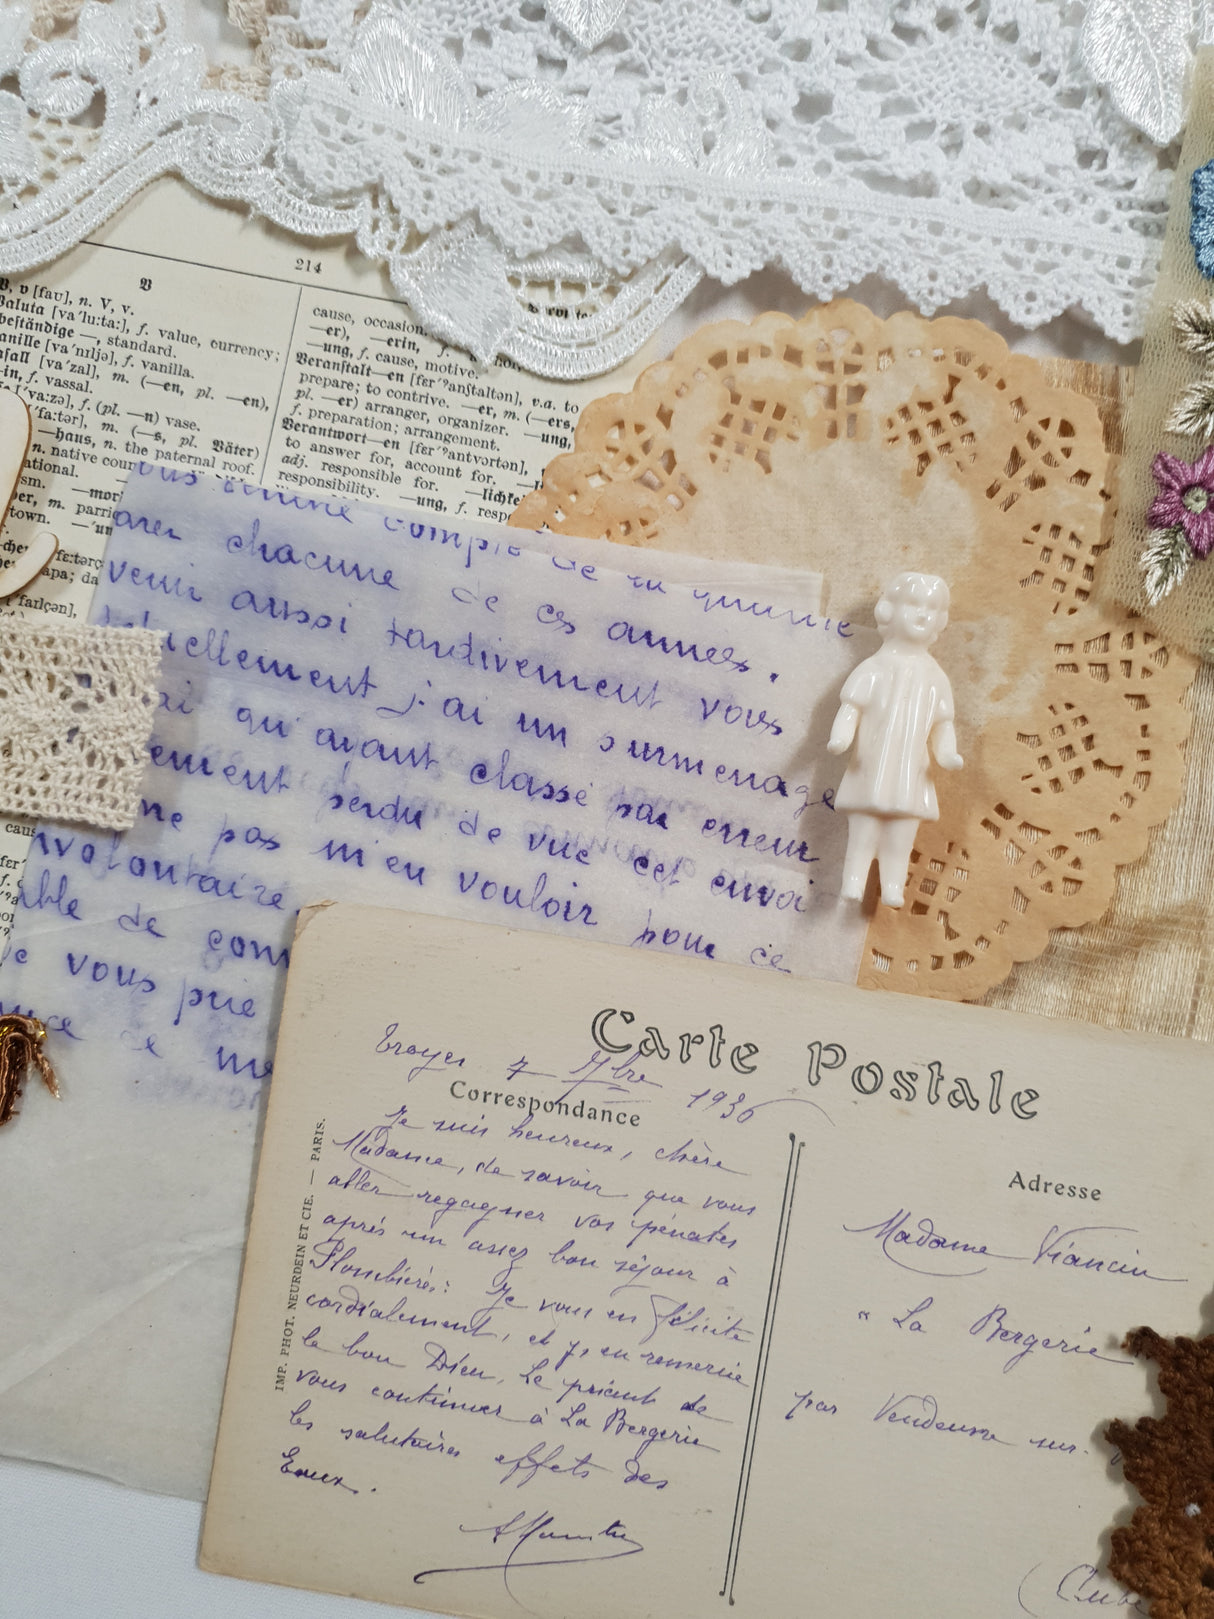 214
V
V, v [fau], n. V, v.
Valuta [va'lu:ta:], f. value, currency;
beständige —, standard.
anille [va'nɪljə], f. vanilla.
[va'zal], m. (—en, pl. —en),
-in, f. vassal.
['va:zə], f. (pl. —n) vase.
'fa:tər], m. (—s, pl. Väter)
—haus, n. the paternal roof.
n. native
ational.
ism. —mor
m. parri
town. —'un
apa; da
cause, occasion.
—er), —erin, f.
—ung, f. cause, motive.
Veranstalt—en [fɛr'ʔanʃtaltən], v.a. to
prepare; to contrive. —er, m. (—ers,
pl. —er) arranger, organizer. —ung,
f. preparation; arrangement.
Verantwort—en [fɛr'ʔantvɔrtən],
to answer for, account for.
adj. responsible for. —lichke
responsibility. —ung, f. resp
compte de la
chacune de ces années.
venir aussi tardivement vous
ellement j'ai un surmenage
ai qui ayant classé par erreur
ement perdu de vue cet envoi
ne pas m'en vouloir pour ce
nvolontaire.
able de com
e vous prie
ance de me
Carte Postale
Troyes 7 7bre 1936
Correspondance
Je suis heureux, chère
Madame, de savoir que vous
aller regagner vos pénates
après un assez bon séjour à
Plombières: Je vous en félicite
cordialement, et j'en remercie
le bon Dieu, Le priant de
vous continuer à La Bergerie
les salutaires effets des
Eaux.
IMP. PHOT. NEURDEIN ET CIE. — PARIS.
Adresse
Madame Viancin
"La Bergerie
par Vendeuvre sur
(Aube